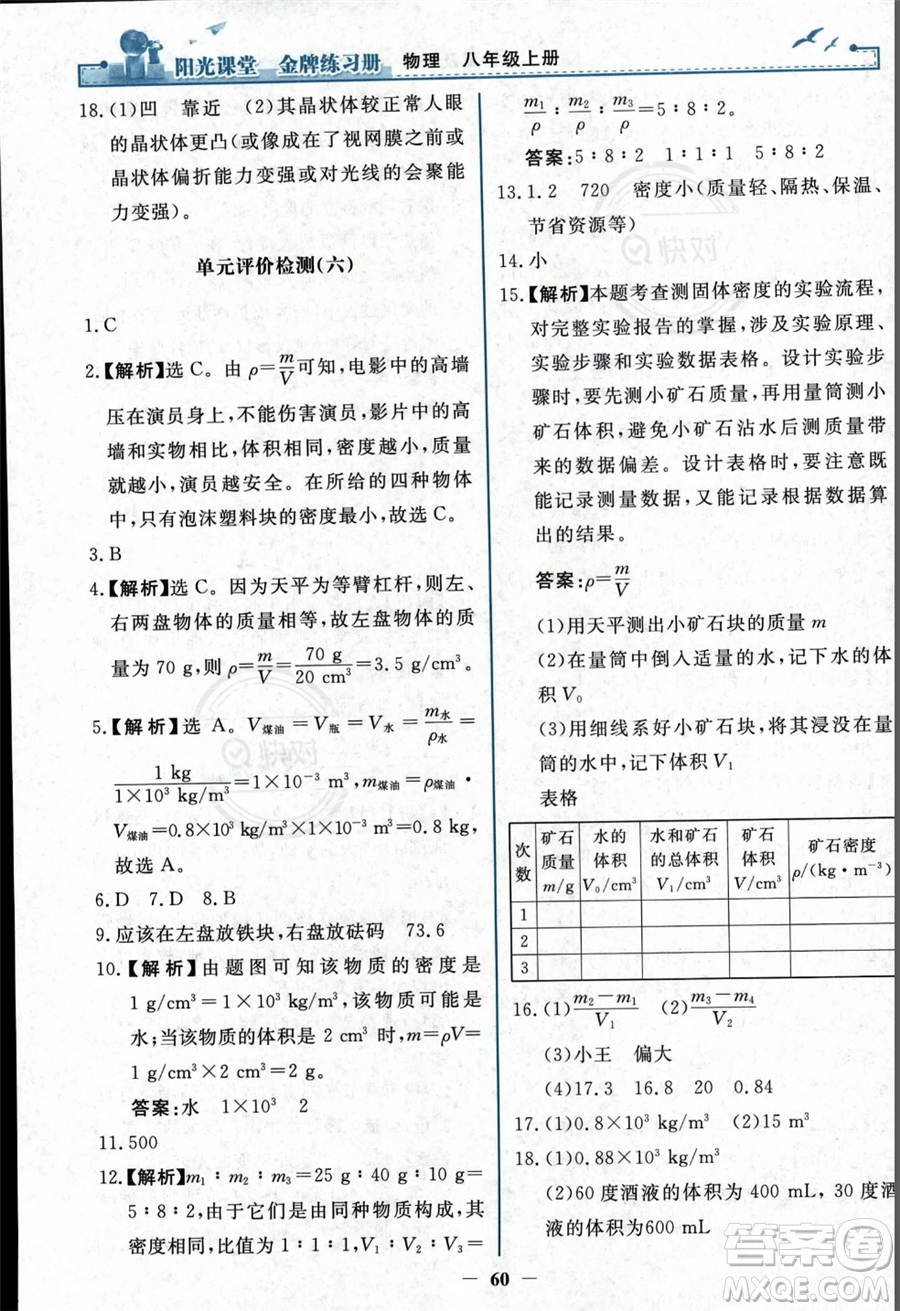 阳光课堂 金牌练习册 物理 八年级上册
18.(1)凹 靠近 (2)其晶状体较正常人眼
的晶状体更凸(或像成在了视网膜之前或
晶状体偏折能力变强或对光线的会聚能
力变强)。
单元评价检测(六)
1.C
2.【解析】选C。由ρ=m/V可知,电影中的高墙
压在演员身上,不能伤害演员,影片中的高
墙和实物比,体积相同,密度越小,质量
就越小,演员越安全。在所给的四种物体
中,只有泡沫塑料块的密度最小,故选C。
3.B
4.【解析】选C。因为天平为等臂杠杆,则左、
右两盘物体的质量相等,故左盘物体的质
量为70 g,则ρ=m/V=70 g/20 cm³=3.5 g/cm³。
5.【解析】选A。V煤油=V瓶=V水=m水/ρ水=
1 kg/1×10³ kg/m³=1×10⁻³ m³,m煤油=ρ煤油·
V煤油=0.8×10³ kg/m³×1×10⁻³ m³=0.8 kg,
故选A。
6.D 7.D 8.B
9.应该在左盘放铁块,右盘放砝码 73.6
10.【解析】由题图可知该物质的密度是
1 g/cm³=1×10³ kg/m³,该物质可能是
水;当该物质的体积是2 cm³时,m=ρV=
1 g/cm³×2 cm³=2 g。
答案:水 1×10³ 2
11.500
12.【解析】m₁∶m₂∶m₃=25 g∶40 g∶10 g=
5∶8∶2,由于它们是由同种物质构成,其
密度相同,比值为1∶1∶1,V₁∶V₂∶V₃=
m₁/ρ∶m₂/ρ∶m₃/ρ=5∶8∶2。
答案:5∶8∶2 1∶1∶1 5∶8∶2
13.1.2 720 密度小(质量轻、隔热、保温、
节省资源等)
14.小
15.【解析】本题考查测固体密度的实验流程,
对完整实验报告的掌握,涉及实验原理、
实验步骤和实验数据表格。设计实验步
骤时,要先测小矿石质量,再用量筒测小
矿石体积,避免小矿石沾水后测质量带
来的数据偏差。设计表格时,要注意既
能记录测量数据,又能记录根据数据算
出的结果。
答案:ρ=m/V
(1)用天平测出小矿石块的质量m
(2)在量筒中倒入适量的水,记下水的体
积V₀
(3)用细线系好小矿石块,将其浸没在量
筒的水中,记下体积V₁
表格
次数 矿石质量m/g 水的体积V₀/cm³ 水和矿石的总体积V₁/cm³ 矿石体积V/cm³ 矿石密度ρ/(kg·m⁻³)
1
2
3
16.(1)m₂-m₁/V₁ (2)m₃-m₄/V₂
(3)小王 偏大
(4)17.3 16.8 20 0.84
17.(1)0.8×10³ kg/m³ (2)15 m³
18.(1)0.88×10³ kg/m³
(2)60度酒液的体积为400 mL,30度酒
液的体积为600 mL
60
快对
快对
答案圈
MXQE.COM